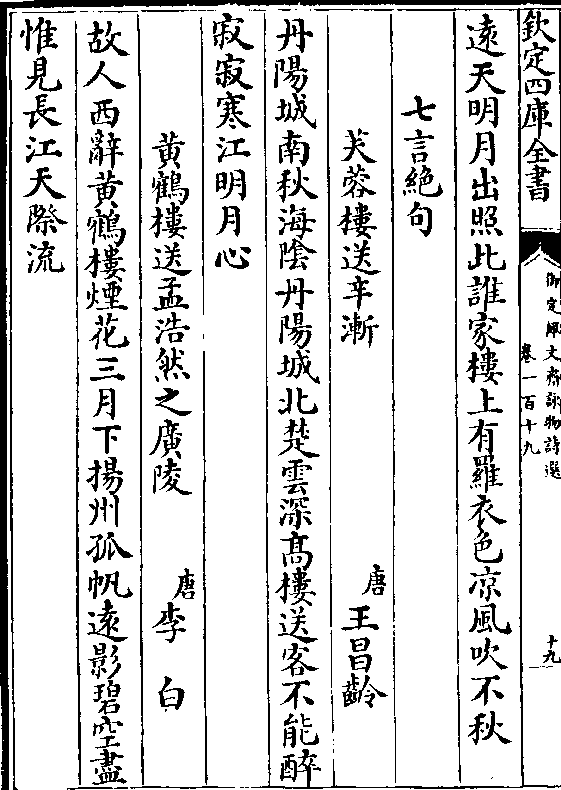 欽定四庫全書
御定佩文齋詠物詩選
卷一百十九
十九
遠天明月出照此誰家樓上有羅衣色凉風吹不秋
七言絶句
芙蓉樓送辛漸
唐王昌齡
丹陽城南秋海陰丹陽城北楚雲深髙樓送客不能醉
寂寂寒江明月心
黄鶴樓送孟浩然之廣陵
唐李白
故人西辭黄鶴樓煙花三月下揚州孤帆遠影碧空盡
惟見長江天際流